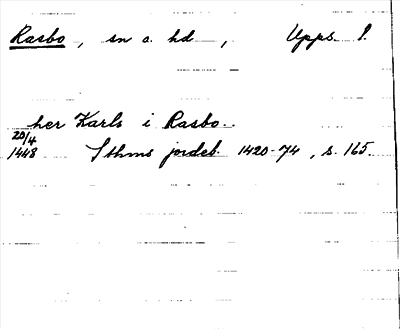 Rasbo, sn o. hd, Upps. l.
her Karls i Rasbo.
20/4
1448 Sthms jordeb. 1420-74, s. 165.